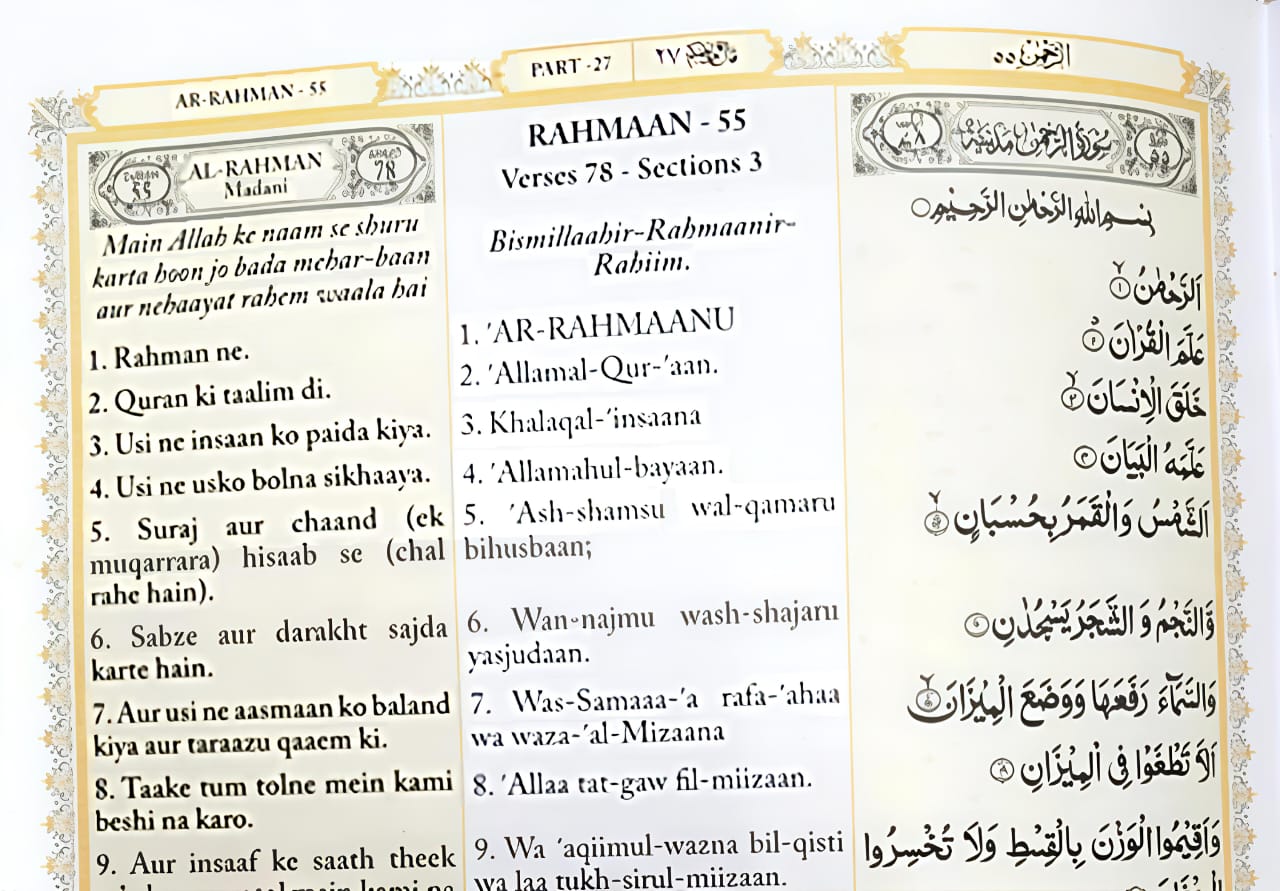 AR-RAHMAN - 55
PART - 27
٢٧
الرحمن ٥٥
AL-RAHMAN
Madani
55
78
Main Allah ke naam se shuru
karta hoon jo bada mehar-baan
aur nehaayat rahem waala hai
1. Rahman ne.
2. Quran ki taalim di.
3. Usi ne insaan ko paida kiya.
4. Usi ne usko bolna sikhaaya.
5. Suraj aur chaand (ek
muqarrara) hisaab se (chal
rahe hain).
6. Sabze aur darakht sajda
karte hain.
7. Aur usi ne aasmaan ko baland
kiya aur taraazu qaaem ki.
8. Taake tum tolne mein kami
beshi na karo.
9. Aur insaaf ke saath theek
RAHMAAN - 55
Verses 78 - Sections 3
Bismillaahir-Rahmaanir-
Rahiim.
1. 'AR-RAHMAANU
2. 'Allamal-Qur-'aan.
3. Khalaqal-'insaana
4. 'Allamahul-bayaan.
5. 'Ash-shamsu wal-qamaru
bihusbaan;
6. Wan-najmu wash-shajaru
yasjudaan.
7. Was-Samaaa-'a rafa-'ahaa
wa waza-'al-Mizaana
8. 'Allaa tat-gaw fil-miizaan.
9. Wa 'aqiimul-wazna bil-qisti
wa laa tukh-sirul-miizaan.
سُورَةُ الرَّحْمٰنِ مَدَنِيَّةٌ
بِسْمِ اللهِ الرَّحْمٰنِ الرَّحِيْمِ
اَلرَّحْمٰنُ
عَلَّمَ الْقُرْاٰنَ
خَلَقَ الْاِنْسَانَ
عَلَّمَهُ الْبَيَانَ
اَلشَّمْسُ وَالْقَمَرُ بِحُسْبَانٍ
وَّالنَّجْمُ وَ الشَّجَرُ يَسْجُدٰنِ
وَالسَّمَآءَ رَفَعَهَا وَوَضَعَ الْمِيْزَانَ
اَلَّا تَطْغَوْا فِى الْمِيْزَانِ
وَاَقِيْمُوا الْوَزْنَ بِالْقِسْطِ وَلَا تُخْسِرُوا